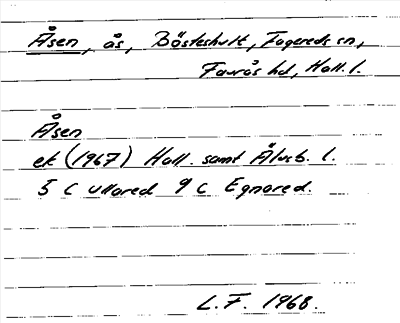 Åsen, ås, Bösteshult, Fagereds sn,
Faurås hd, Hall. l.
Åsen
ek (1967) Hall. samt Älvsb. l.
5 C Ullared 9 C Egnared.
L.F. 1968.